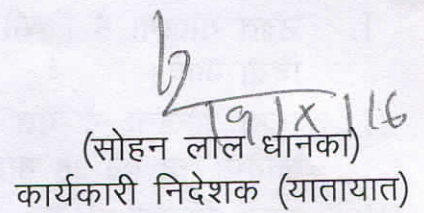 19/X/16
(सोहन लाल धानका)
कार्यकारी निदेशक (यातायात)